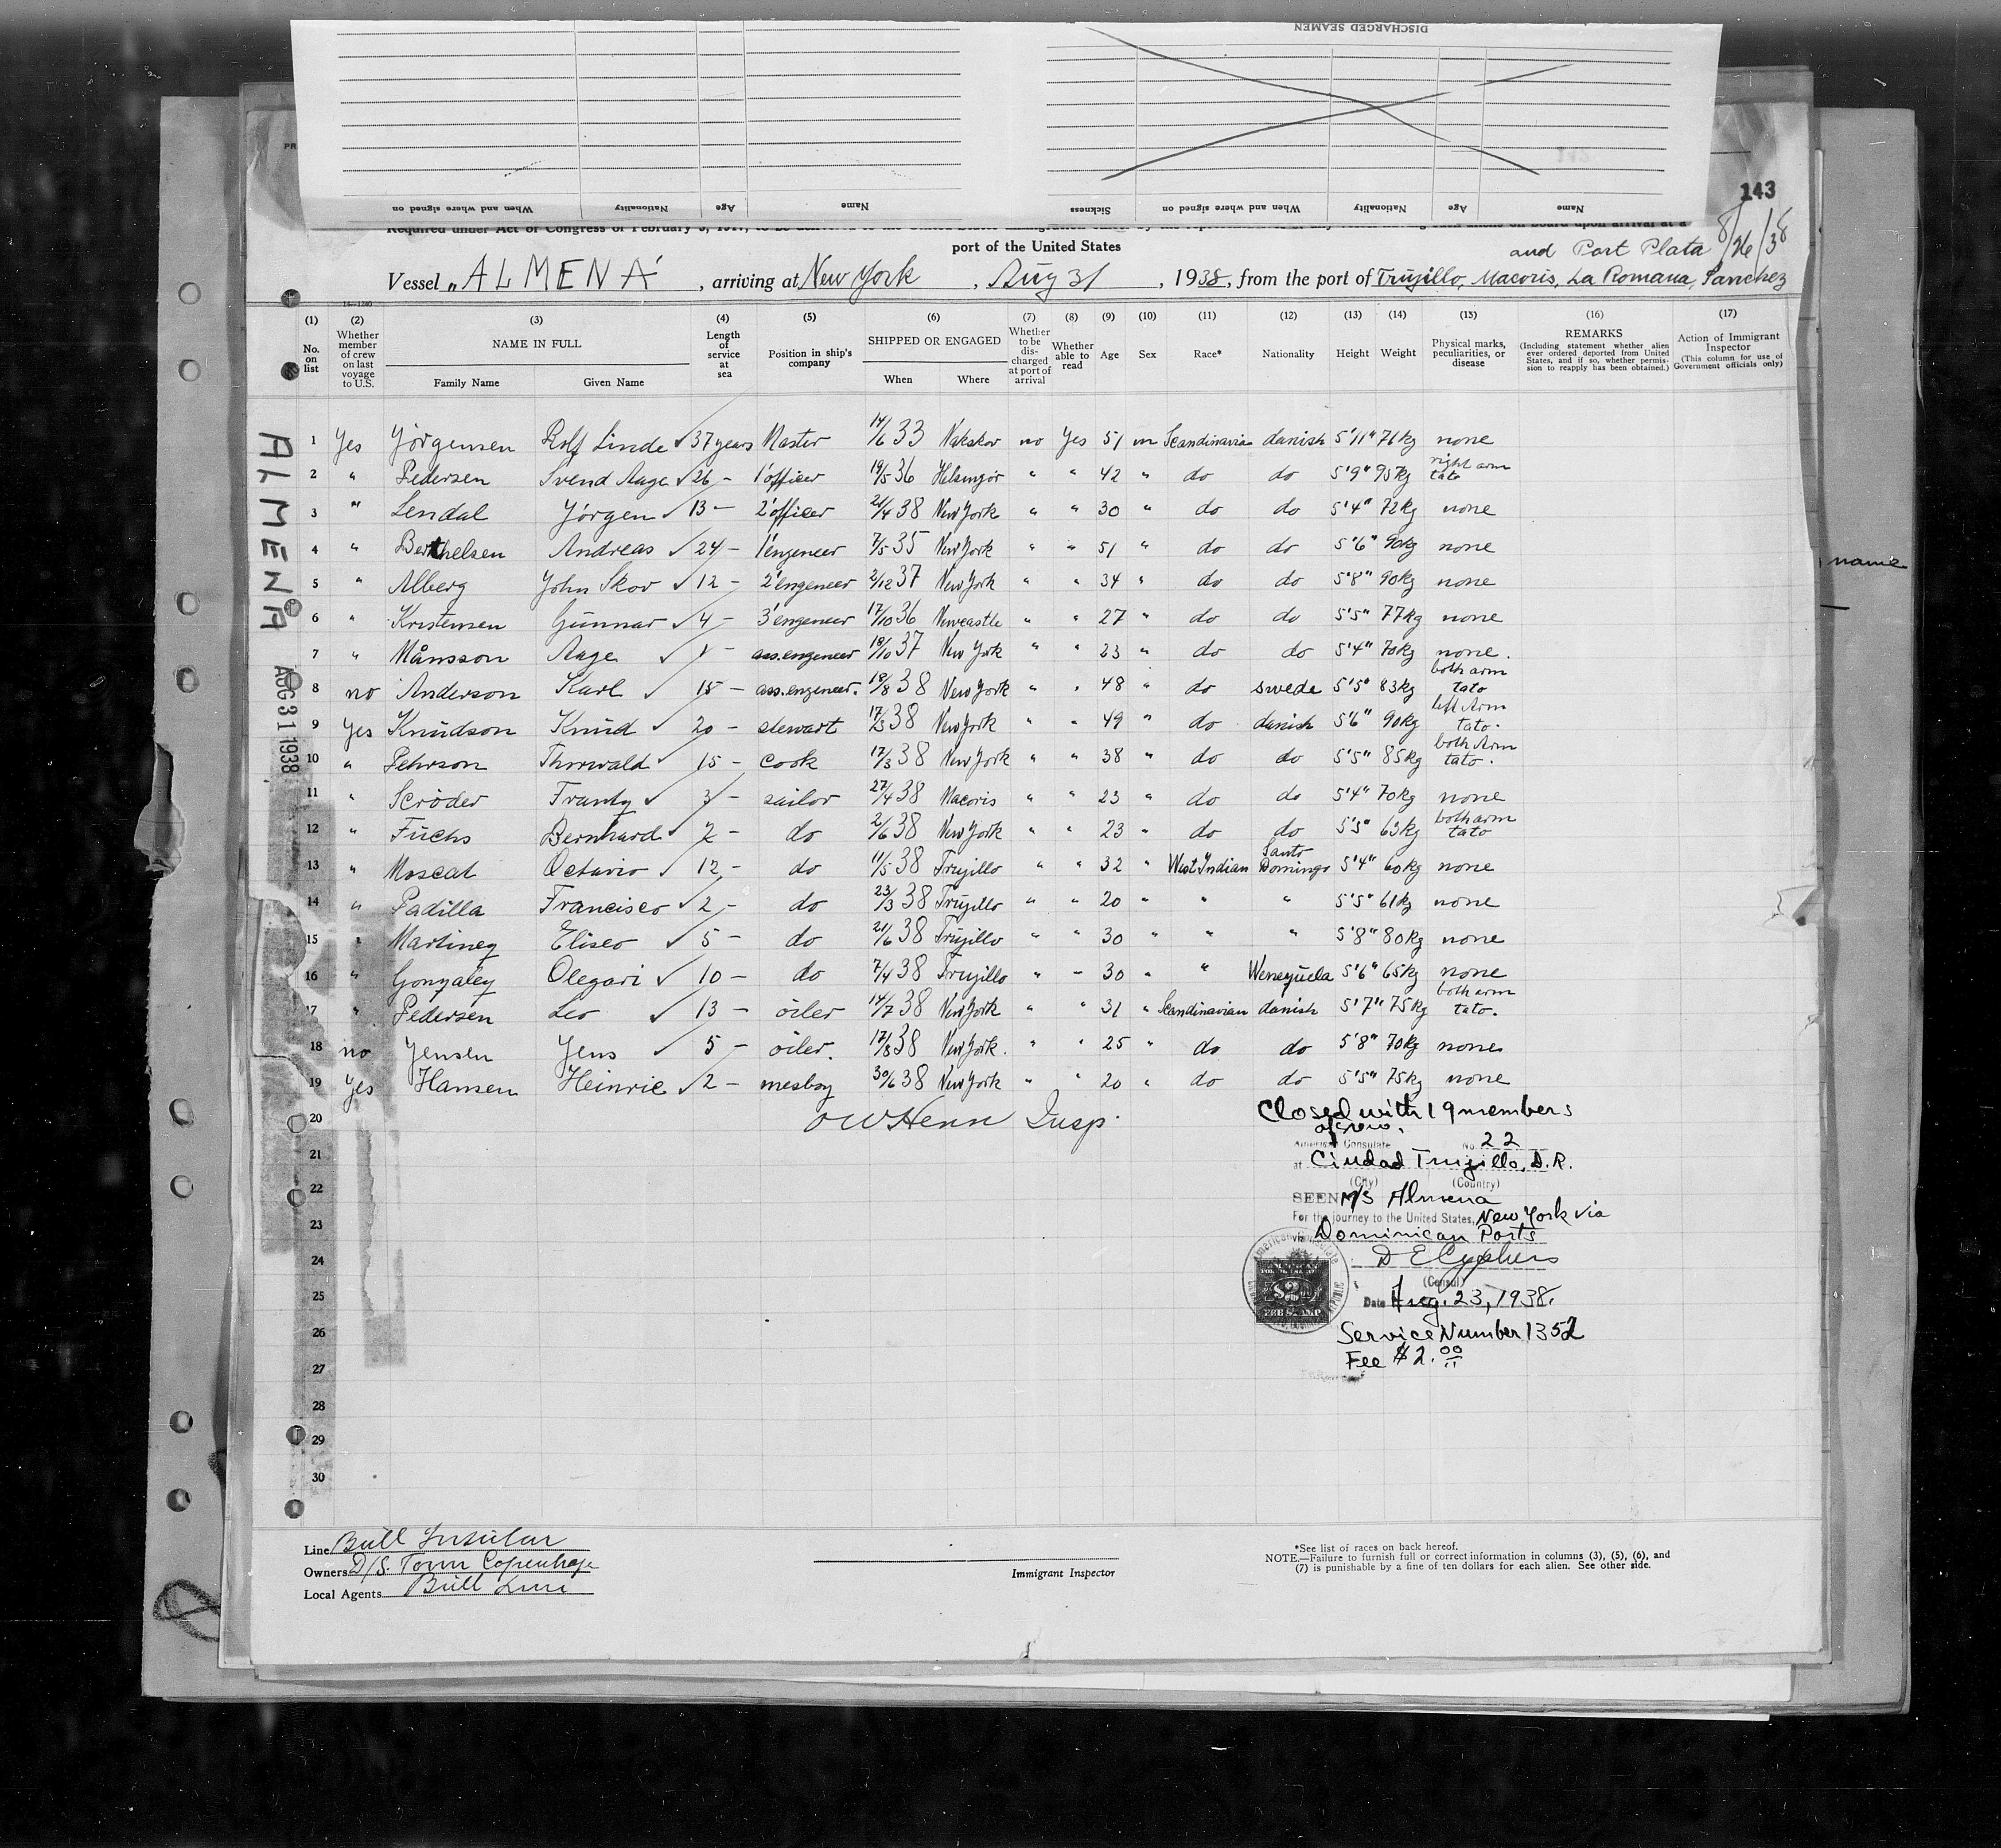 DISCHARGED SEAMEN
When and where signed on Nationality Age Name Sickness When and where signed on Nationality Age Name
143
8/26/38
Required under Act of Congress of February 5, 1917, to be delivered to the United States
port of the United States
and Port Plata
Vessel „ALMENA", arriving at New York, Aug 31, 1938, from the port of Trujillo, Macoris, La Romana, Sanchez
(1) (2) (3) (4) (5) (6) (7) (8) (9) (10) (11) (12) (13) (14) (15) (16) (17)
No. on list
Whether member of crew on last voyage to U.S.
NAME IN FULL
Family Name Given Name
Length of service at sea
Position in ship's company
SHIPPED OR ENGAGED
When Where
Whether to be discharged at port of arrival
Whether able to read
Age Sex Race* Nationality Height Weight
Physical marks, peculiarities, or disease
REMARKS
(Including statement whether alien ever ordered deported from United States, and if so, whether permission to reapply has been obtained.)
Action of Immigrant Inspector
(This column for use of Government officials only)
ALMENA
AUG 31 1938
1 Yes Jörgensen Rolf Linde 37 years Master 14/6 33 Nakskov no Yes 51 m Scandinavia danish 5'11" 76kg none
2 " Pedersen Svend Aage 26 - 1'officer 19/5 36 Helsingör " " 42 " do do 5'9" 95kg right arm tato
3 " Lendal Jörgen 13 - 2'officer 21/4 38 New York " " 30 " do do 5'4" 72kg none
4 " Berthelsen Andreas 24 - 1'engeneer 7/5 35 New York " " 51 " do do 5'6" 90kg none
5 " Alberg John Skov 12 - 2'engeneer 2/12 37 New York " " 34 " do do 5'8" 90kg none
6 " Kristensen Gunnar 4 - 3'engeneer 17/10 36 Newcastle " " 27 " do do 5'5" 77kg none
7 " Månsson Aage 1 - ass.engeneer 18/10 37 New York " " 23 " do do 5'4" 70kg none.
8 no Anderson Karl 15 - ass.engeneer. 18/8 38 New York " " 48 " do swede 5'5" 83kg both arm tato
9 Yes Knudson Knud 20 - stewart 17/3 38 New York " " 49 " do danish 5'6" 90kg left Arm tato.
10 " Pehrson Thorwald 15 - cook 17/3 38 New York " " 38 " do do 5'5" 85kg both Arm tato.
11 " Scröder Frantz 3 - sailor 27/4 38 Macoris " " 23 " do do 5'4" 70kg none
12 " Fuchs Bernhard 2 - do 2/6 38 New York " " 23 " do do 5'5" 63kg both arm tato
13 " Moscat Octavio 12 - do 11/5 38 Trujillo " " 32 " West Indian Santo Domingo 5'4" 60kg none
14 " Padilla Francisco 2 - do 23/3 38 Trujillo " " 20 " " " 5'5" 61kg none
15 " Martinez Eliseo 5 - do 21/6 38 Trujillo " " 30 " " " 5'8" 80kg none
16 " Gonzalez Olegari 10 - do 7/4 38 Trujillo " - 30 " " Wenezuela 5'6" 65kg none
17 " Pedersen Leo 13 - oiler 14/7 38 New York " " 31 " Scandinavian danish 5'7" 75kg both arm tato.
18 no Jensen Jens 5 - oiler. 17/8 38 New York. " " 25 " do do 5'8" 70kg none
19 Yes Hansen Heinric 2 - mesboy 30/6 38 New York " " 20 " do do 5'5" 75kg none
20
21
22
23
24
25
26
27
28
29
30
O W Henn Insp.
Closed with 19 members
of crew.
American Consulate No. 22
at Ciudad Trujillo, D.R.
(City) (Country)
SEEN M/S Almena
For the journey to the United States, New York via
Dominican Ports
D E Cyphers
(Consul)
Date Aug. 23, 1938.
Service Number 1352
Fee $2.00
$2
FEE STAMP
name
Line Bull Insular
Owners D/S. Torm Copenhage
Local Agents Bull Line
Immigrant Inspector
*See list of races on back hereof.
NOTE.—Failure to furnish full or correct information in columns (3), (5), (6), and
(7) is punishable by a fine of ten dollars for each alien. See other side.